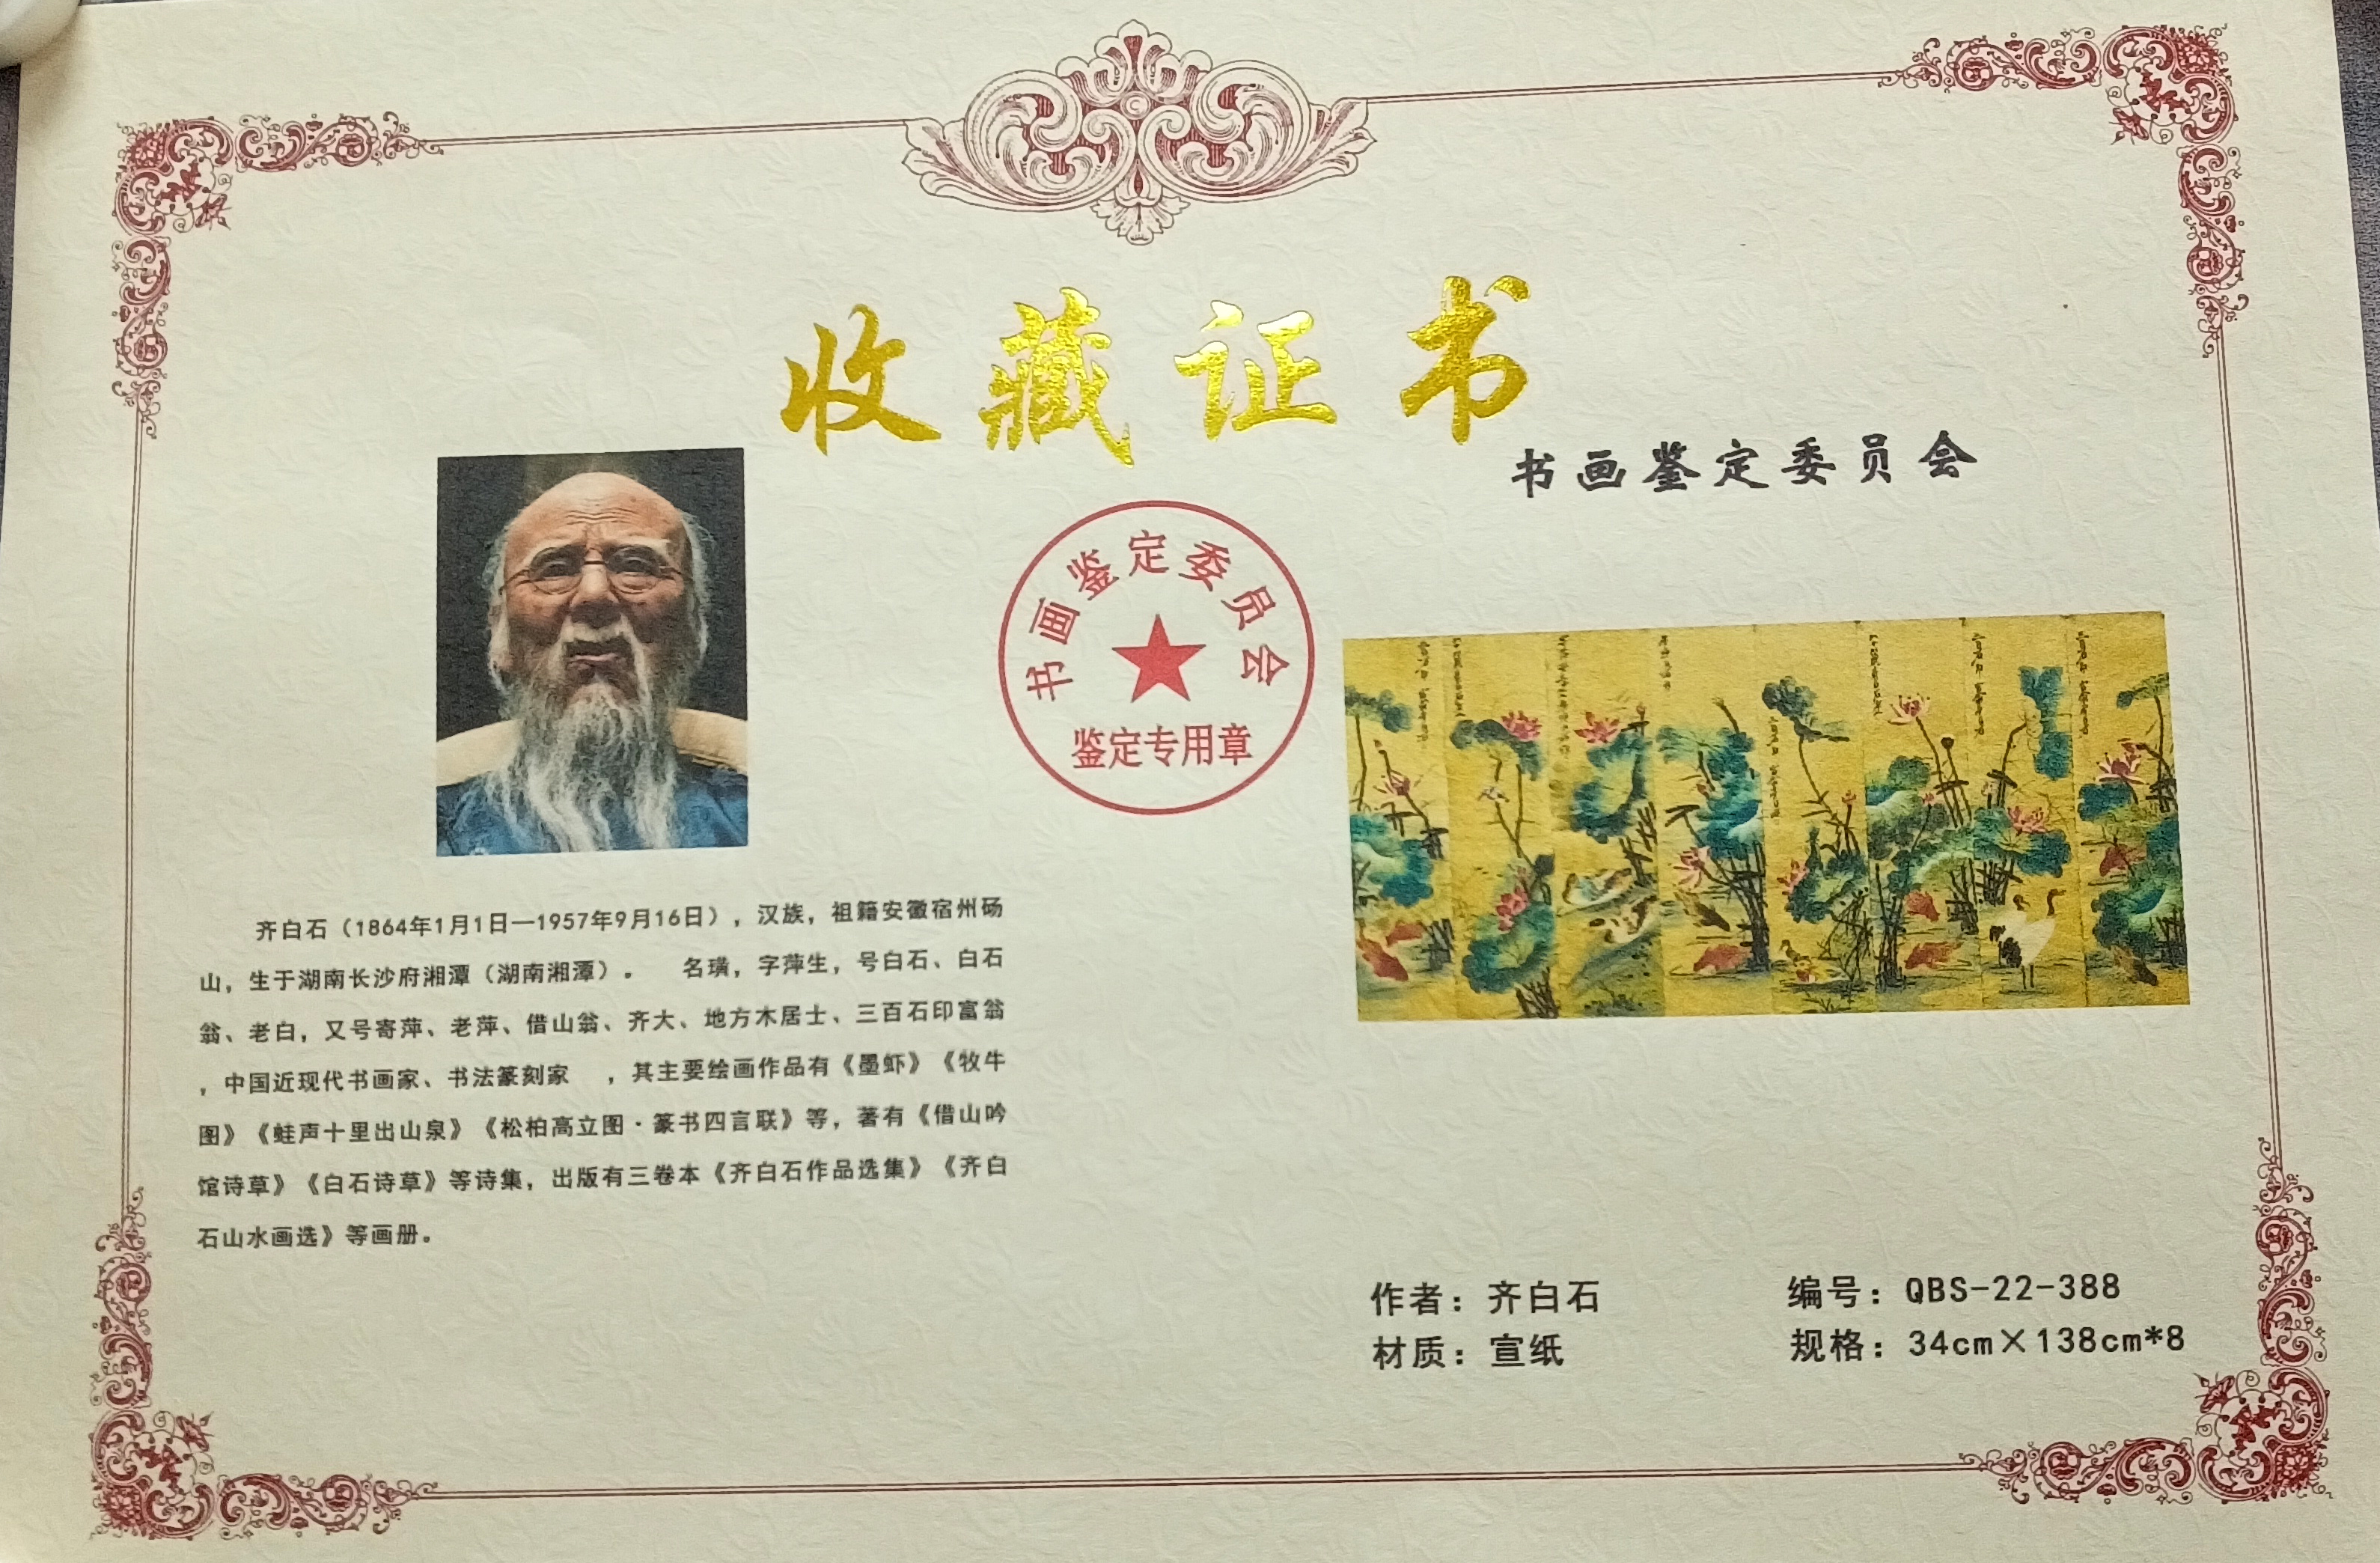 收藏证书
书画鉴定委员会
书画鉴定委员会
鉴定专用章
齐白石（1864年1月1日—1957年9月16日），汉族，祖籍安徽宿州砀
山，生于湖南长沙府湘潭（湖南湘潭）。 名璜，字萍生，号白石、白石
翁、老白，又号寄萍、老萍、借山翁、齐大、地方木居士、三百石印富翁
，中国近现代书画家、书法篆刻家 ，其主要绘画作品有《墨虾》《牧牛
图》《蛙声十里出山泉》《松柏高立图·篆书四言联》等，著有《借山吟
馆诗草》《白石诗草》等诗集，出版有三卷本《齐白石作品选集》《齐白
石山水画选》等画册。
作者：齐白石
编号：QBS-22-388
材质：宣纸
规格：34cm×138cm*8